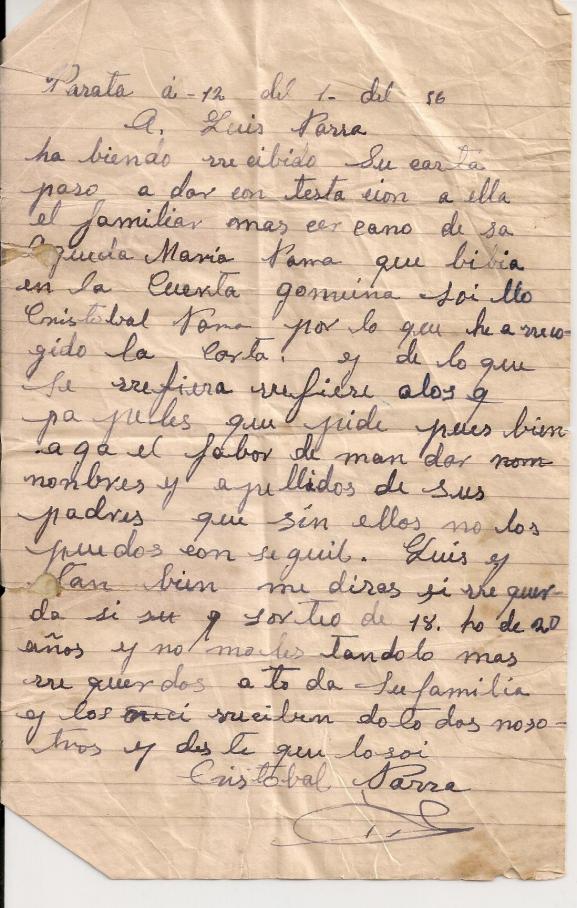 Parata á-12 del 1- del 56
A. Luis Parra
ha biendo rrecibido Su carta
paso a dar con testa cion a ella
el familiar mas cer cano de sa
María Parra que bibia
en la Cuerta gomuina soi llo
Cristobal Parra por lo que he a rreco-
gido la Carta. y de lo que
se rrefiera rrefiere alos q
pa peles que pide pues bien
aga el fabor de man dar nom
nombres y apellidos de sus
padres que sin ellos no los
puedos con seguil. Luis y
tan bien me diras si rre quer-
da si su q sorteo de 18. ho de 20
años y no moles tandolo mas
rre querdos a to da su familia
y los reciben do to dos noso-
tros y des te que lo soi
Cristobal Parra